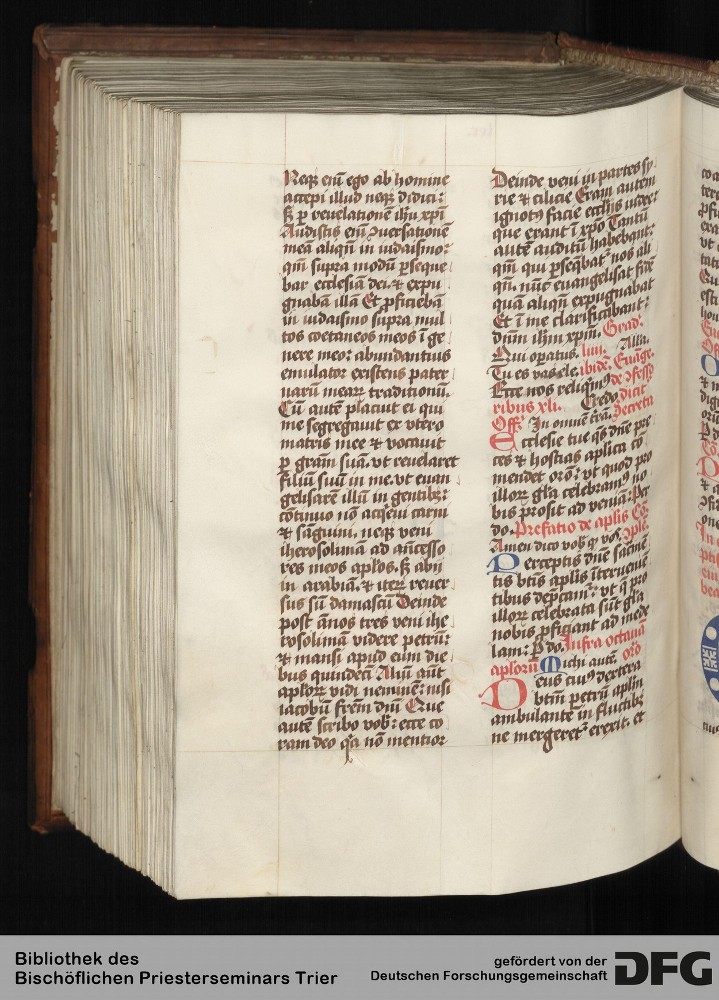 Neq; eni͂ ego ab homine
accepi illud neq; didici:
s; p̱ reuelatione͂ ih͂u xp͂i
Audistis eni͂ ꝯuersatione͂
mea͂ aliqn͂ in iudaismo:
qm͂ supra modu͂ ꝑseque
bar ecclesia͂ dei. ⁊ expu
gnaba͂ illa͂ Et ꝓficieba͂
in iudaismo supra mul
tos coetaneos meos i͂ ge
nere meo: abundantius
emulator existens pater
naru͂ mearꝝ traditionu͂.
Cu͂ aute͂ placuit ei qui
me segregauit ex vtero
matris mee ⁊ vocauit
ꝑ gram͂ sua͂. vt reuelaret
filiu͂ suu͂ in me. vt euan
gelisare͂ illu͂ in gentib;:
co͂tinuo no͂ acq͂eui carni
⁊ sa͂guini. neque veni
iherosolima͂ ad an͂cesso
res meos aplo͂s. s; abii
in arabia͂. ⁊ iteꝝ reuer
sus su͂ damascu͂ Deinde
post a͂nos tres veni ihe
rosolima͂ videre petru͂:
⁊ mansi apud eum die
bus quindeci͂ Aliu͂ aut͂
aplo͂rꝝ vidi nemine͂: nisi
iacobu͂ frem͂ dn͂i Que
aute͂ scribo vob͂: ecce co
ram deo q͂a no͂ mentior
Deinde veni in partes sy
rie ⁊ cilicie Eram autem
ignotꝰ facie eccl͂ijs iudee:
que erant i͂ xp͂o Tantu͂
aute͂ auditu͂ habebant:
qm͂ qui ꝑseq͂bat͂ nos ali
qn͂. nu͂c euangelisat fide͂
qua͂ aliqn͂ expugnabat
Et i͂ me clarificabant:
dn͂m ih͂m xp͂m. Grad͂.
Qui opatus. liiij. Alla.
Tu es vas ele. ibide͂. Eua͂ge.
Ecce nos reliqmꝰ de ꝯfess
ribus xli. Credo dicit͂
Off͂. In omne͂ t͂ra͂. Secreta
Ecclesie tue q͂s dn͂e pre
ces ⁊ hostias aplica͂ co͂
mendet oro͂: vt quod pro
illorꝝ gl͂a celebramꝰ no
bis prosit ad venia͂: Per
do. Prefatio de ap͂lis Co͂.
Amen dico vob͂ q͂ vos. ꝯple.
Perceptis dn͂e sacme͂
tis bt͂is apl͂is i͂teruenie͂
tibus dep͂camꝰ: vt q͂ pro
illorꝝ celebrata su͂t gl͂a
nobis ꝓficiant ad mede
lam: P do. Infra octaua͂
aplo͂ru͂ Michi aut͂. oro͂
Deus cuiꝰ dextera
bt͂m petru͂ apl͂m
ambulante͂ in fluctib;
ne mergeret͂ erexit. et
Bibliothek des
Bischöflichen Priesterseminars Trier
gefördert von der
Deutschen Forschungsgemeinschaft
DFG